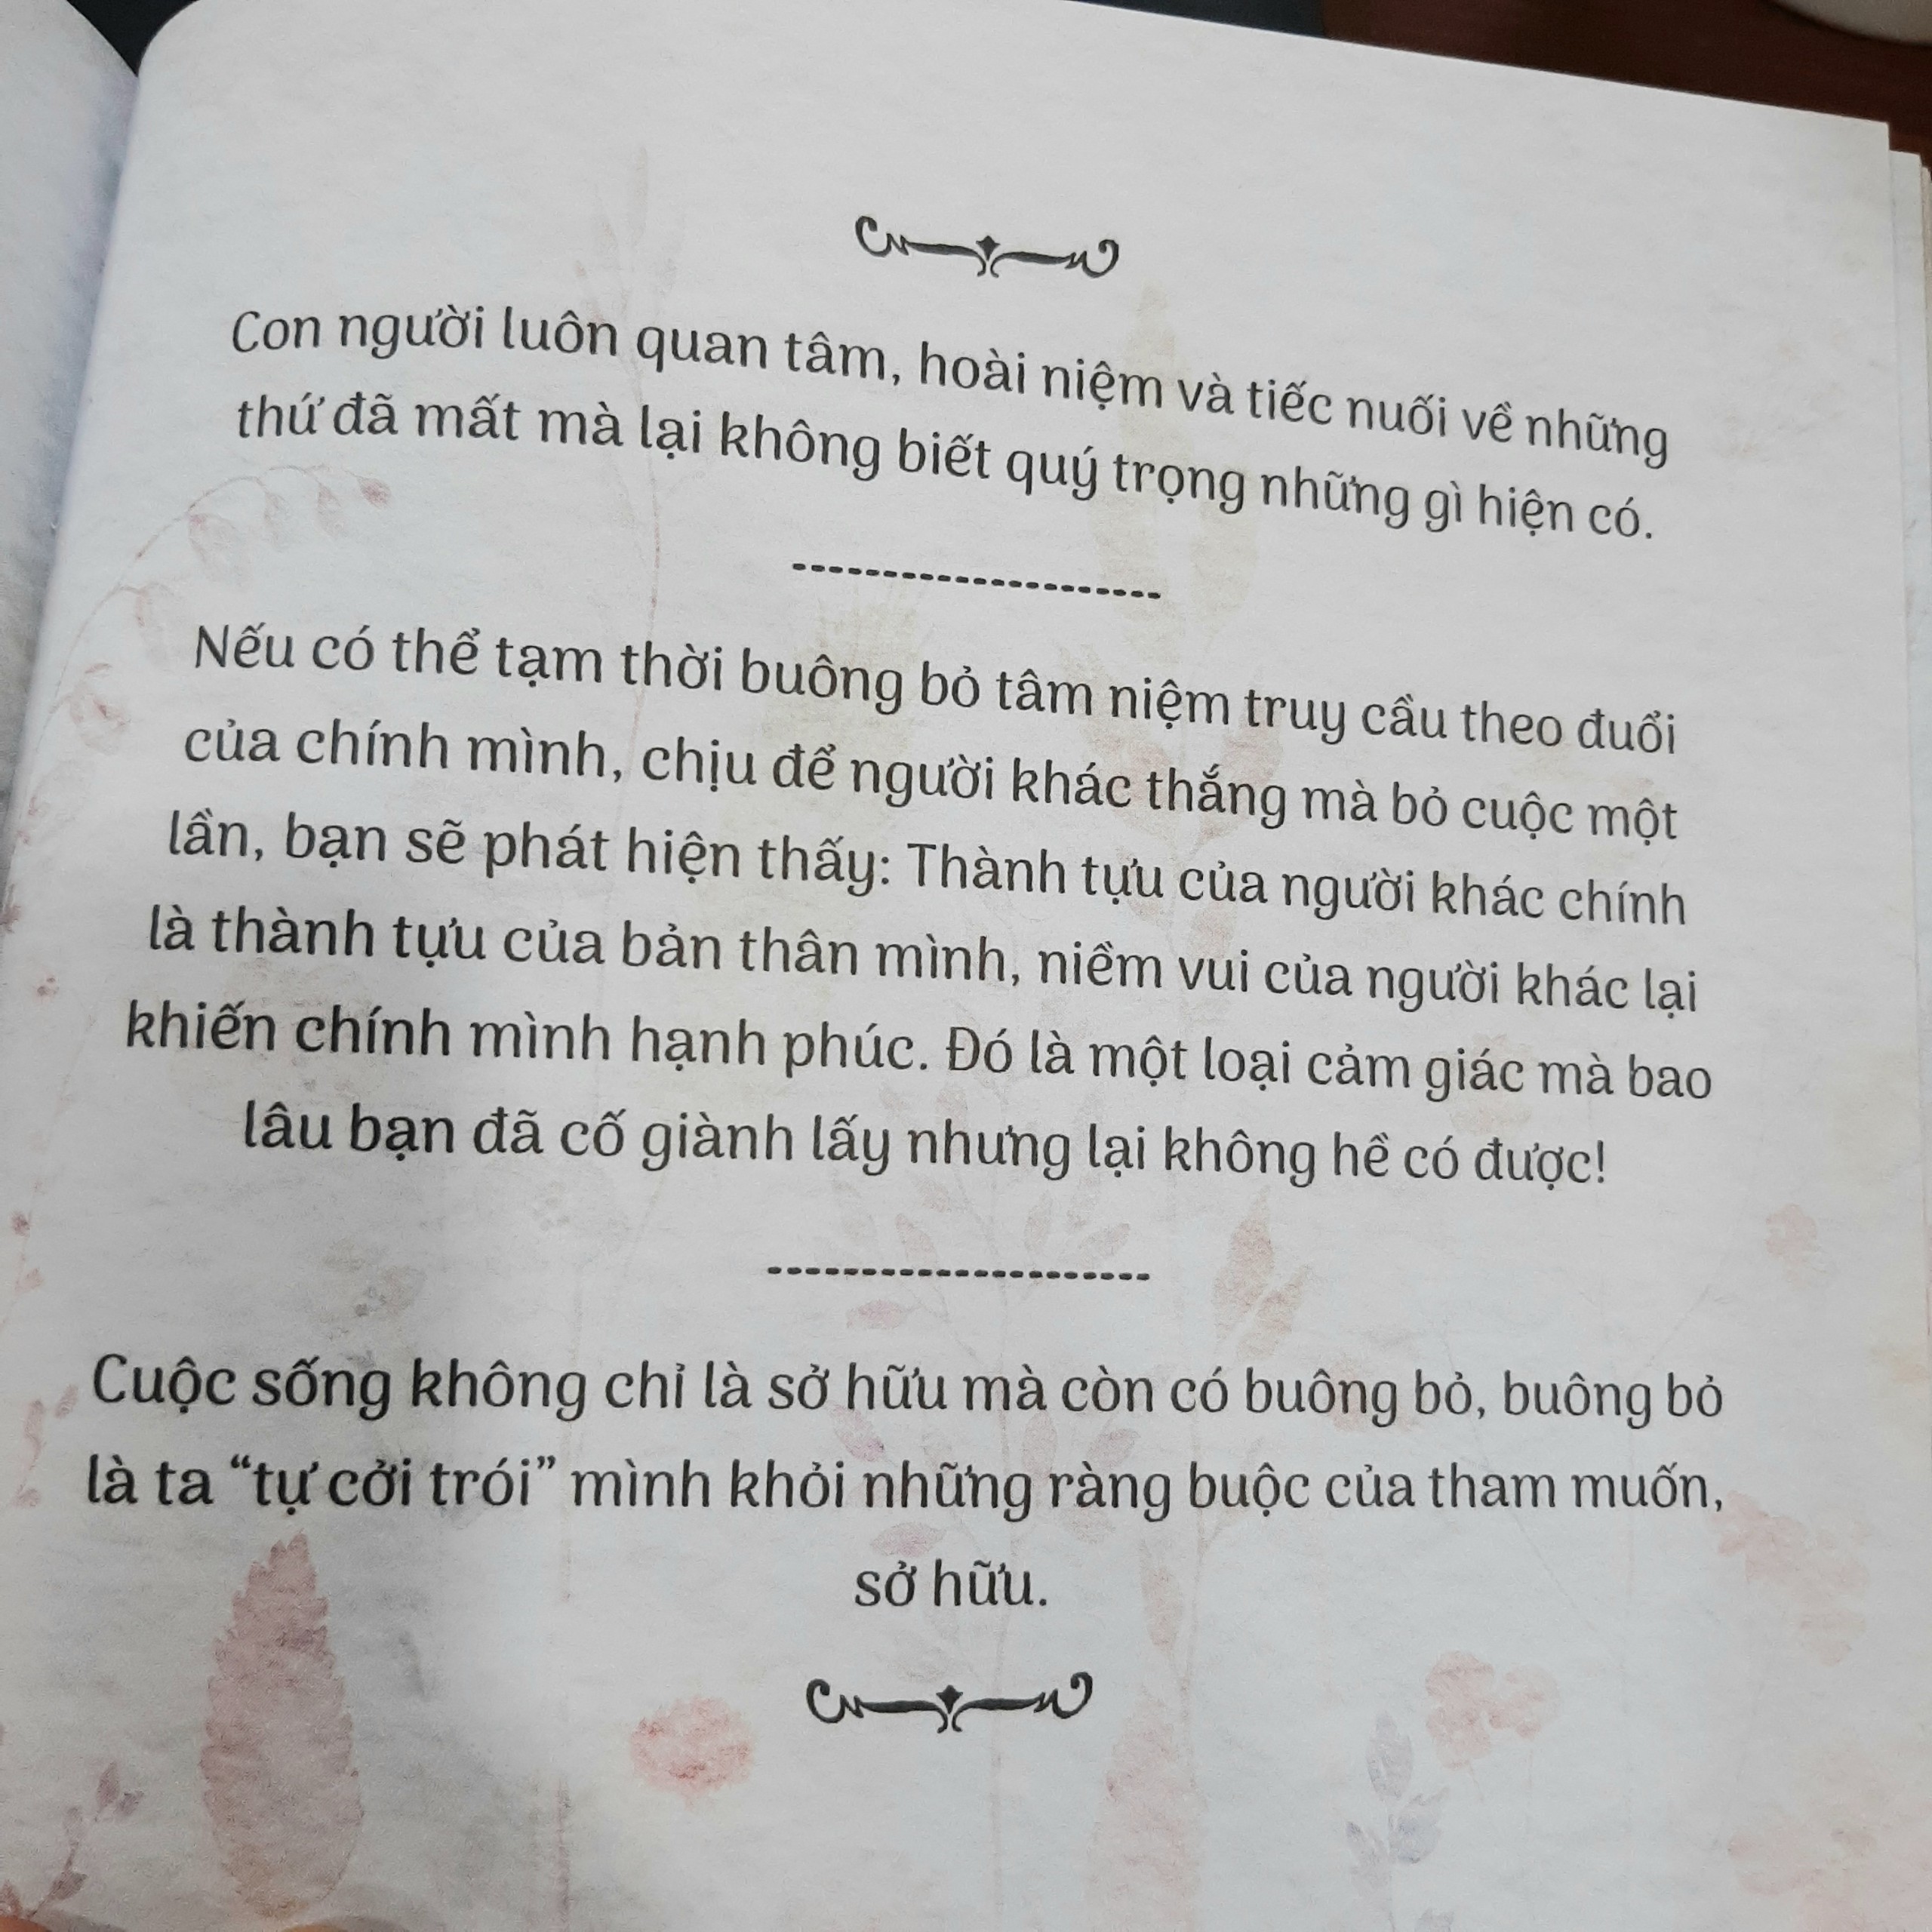 Con người luôn quan tâm, hoài niệm và tiếc nuối về những
thứ đã mất mà lại không biết quý trọng những gì hiện có.
---------------------
Nếu có thể tạm thời buông bỏ tâm niệm truy cầu theo đuổi
của chính mình, chịu để người khác thắng mà bỏ cuộc một
lần, bạn sẽ phát hiện thấy: Thành tựu của người khác chính
là thành tựu của bản thân mình, niềm vui của người khác lại
khiến chính mình hạnh phúc. Đó là một loại cảm giác mà bao
lâu bạn đã cố giành lấy nhưng lại không hề có được!
---------------------
Cuộc sống không chỉ là sở hữu mà còn có buông bỏ, buông bỏ
là ta “tự cởi trói” mình khỏi những ràng buộc của tham muốn,
sở hữu.